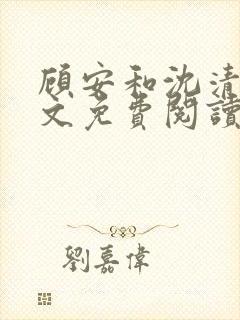 顾安和沈清
文免費閱讀
劉嘉偉